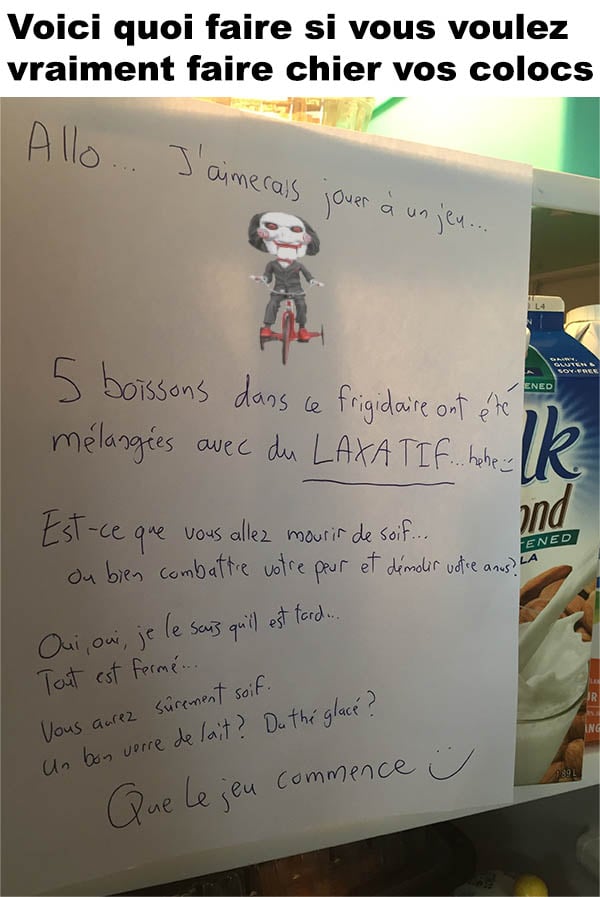 Voici quoi faire si vous voulez
vraiment faire chier vos colocs
Allo... J'aimerais jouer à un jeu...
5 boissons dans ce frigidaire ont été
mélangées avec du LAXATIF... hehe
Est-ce que vous allez mourir de soif...
ou bien combattre votre peur et démolir votre anus?
Oui, oui, je le sais qu'il est tard...
Tout est fermé...
Vous aurez sûrement soif.
Un bon verre de lait? Du thé glacé?
Que le jeu commence
L4
DAIRY,
GLUTEN &
SOY-FREE
ENED
lk
ond
TENED
LA
1.89L